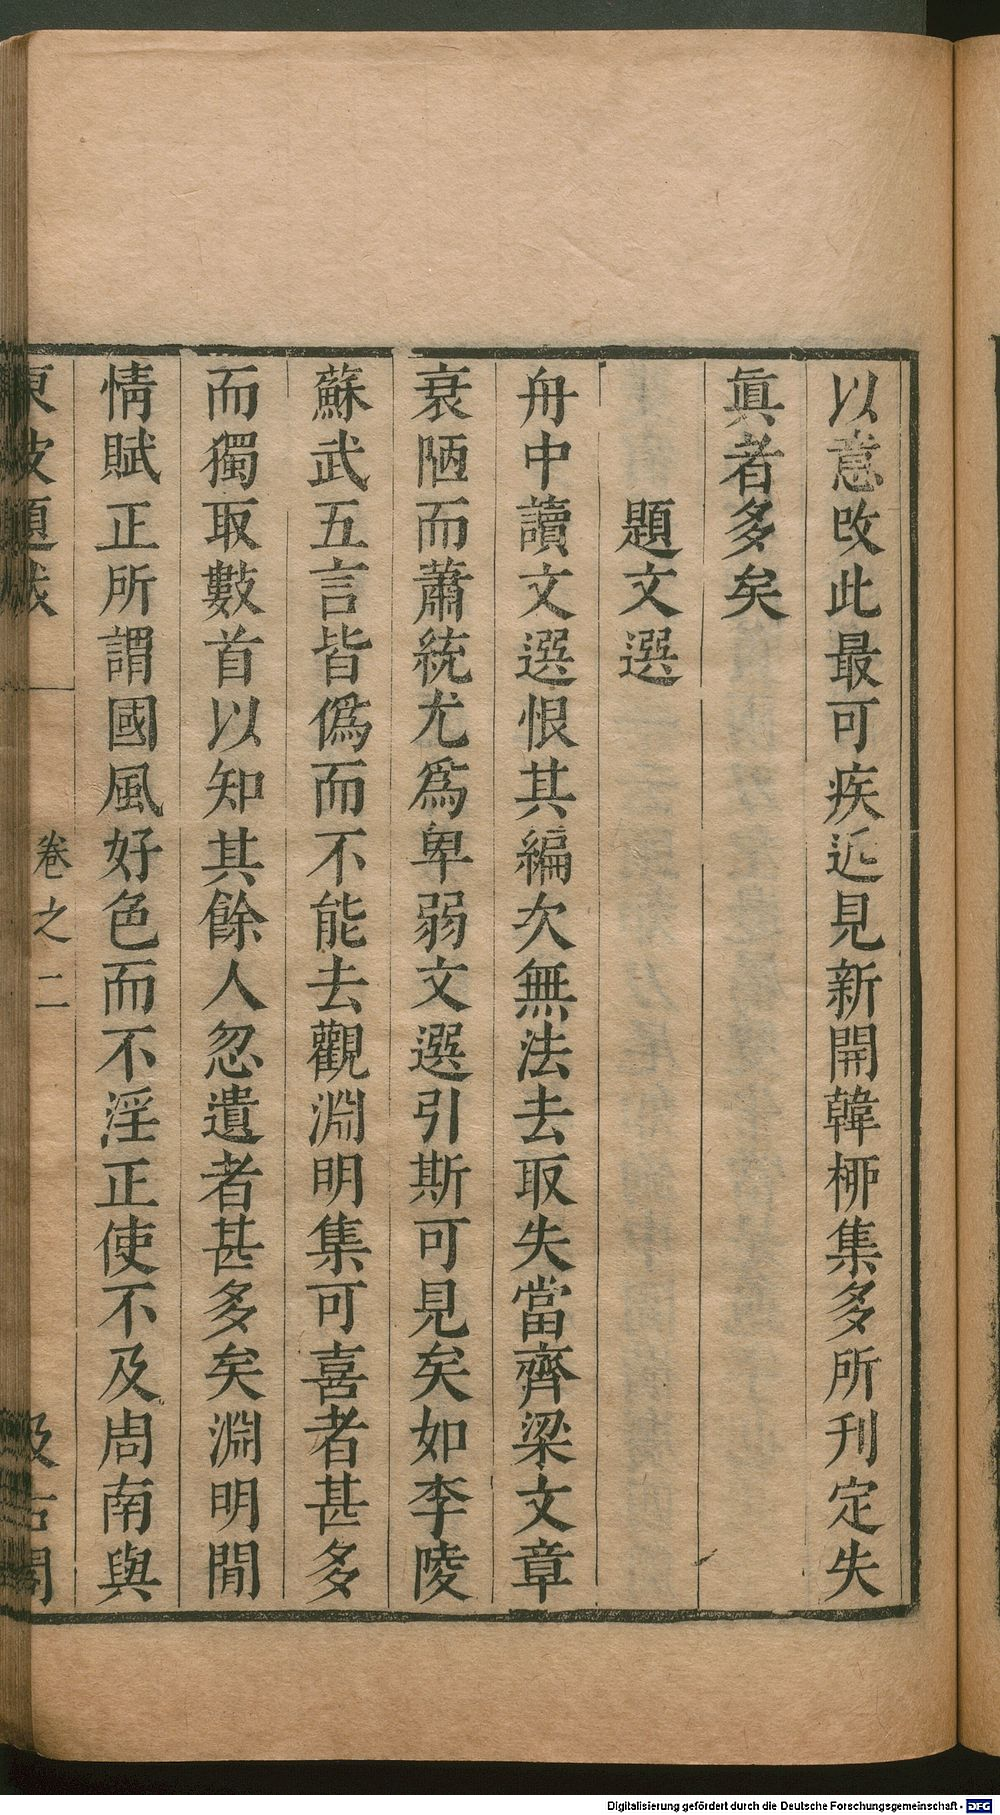 以意改此最可疾近見新開韓栁集多所刊定失
眞者多矣
題文選
舟中讀文選恨其編次無法去取失當齊梁文章
衰陋而蕭統尤爲卑弱文選引斯可見矣如李陵
蘇武五言皆僞而不能去觀淵明集可喜者甚多
而獨取數首以知其餘人忽遺者甚多矣淵明閒
情賦正所謂國風好色而不淫正使不及周南與
東坡題跋 卷之二 汲古閣
Digitalisierung gefördert durch die Deutsche Forschungsgemeinschaft - DFG